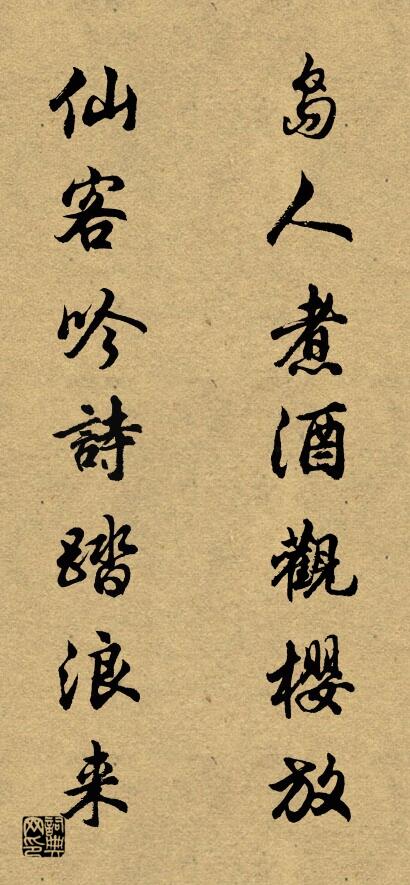 島人煮酒觀櫻放
仙客吟詩踏浪来
詞典网印